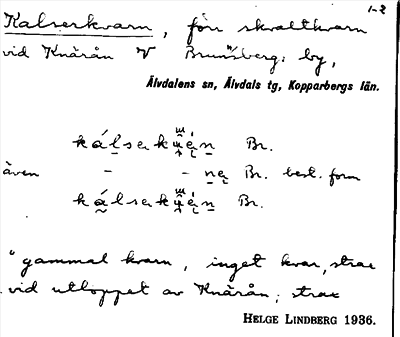 1-2
Kalserkvarn, förr skvaltkvarn
vid Knärån V Brunnsberg: by,
Älvdalens sn, Älvdals tg, Kopparbergs län.
Br.
även - - Br. best. form
Br.
"gammal kvarn, inget kvar, strax
vid utloppet av Knärån; strax
HELGE LINDBERG 1936.